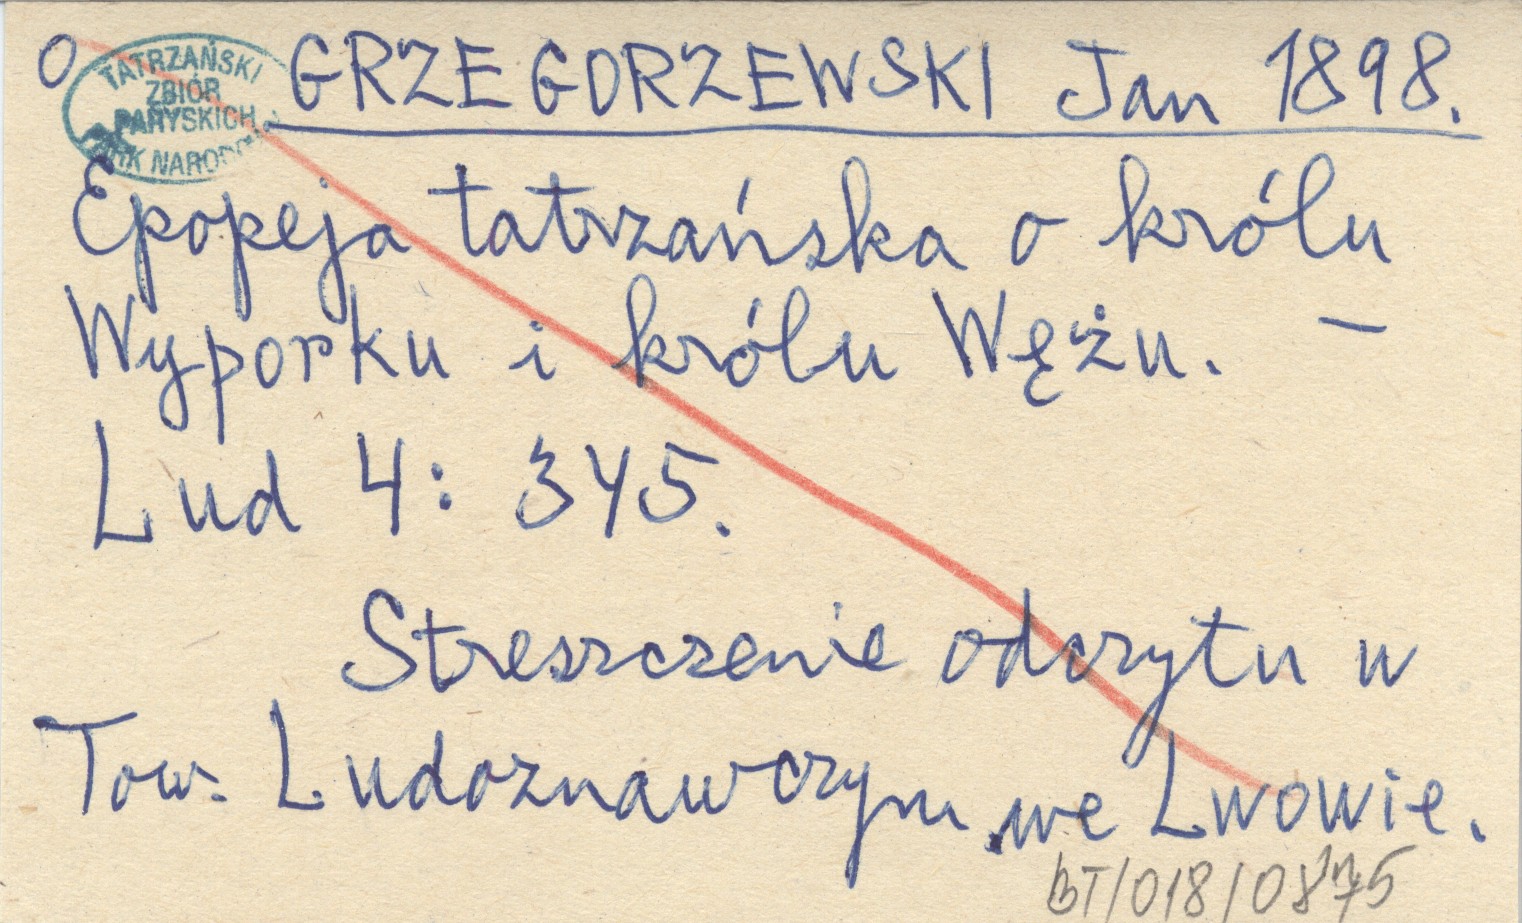 o GRZEGORZEWSKI Jan 1898.
TATRZAŃSKI
ZBIÓR
PARYSKICH
PARK NARODO
Epopeja tatrzańska o królu
Wyporku i królu Wężu. —
Lud 4: 345.
Streszczenie odczytu w
Tow. Ludoznawczym we Lwowie.
BT/018/0875